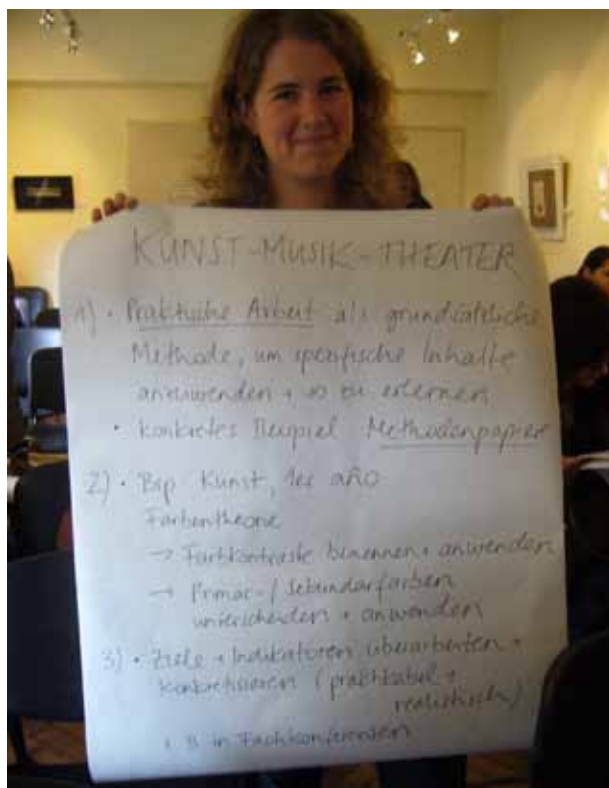 KUNST-MUSIK-THEATER
1) • Praktische Arbeit als grundsätzliche
Methode, um spezifische Inhalte
anzuwenden + so zu erlernen
• konkretes Beispiel Methodenpapier
2) • Bsp Kunst, 1er año
Farbentheorie
→ Farbkontraste benennen + anwenden
→ Primär-/Sekundärfarben
unterscheiden + anwenden
3) • Ziele + Indikatoren überarbeiten +
konkretisieren (praktikabel +
realistisch)
z.B. in Fachkonferenzen